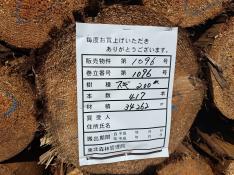 毎度お買上げいただき
ありがとうございます。
販売物件 第 1096 号
巻立番号 第 1096 号
樹種 スギ 200
本数 417 本
材積 34.262
買受人
住所氏名
搬出期間
東北森林管理局